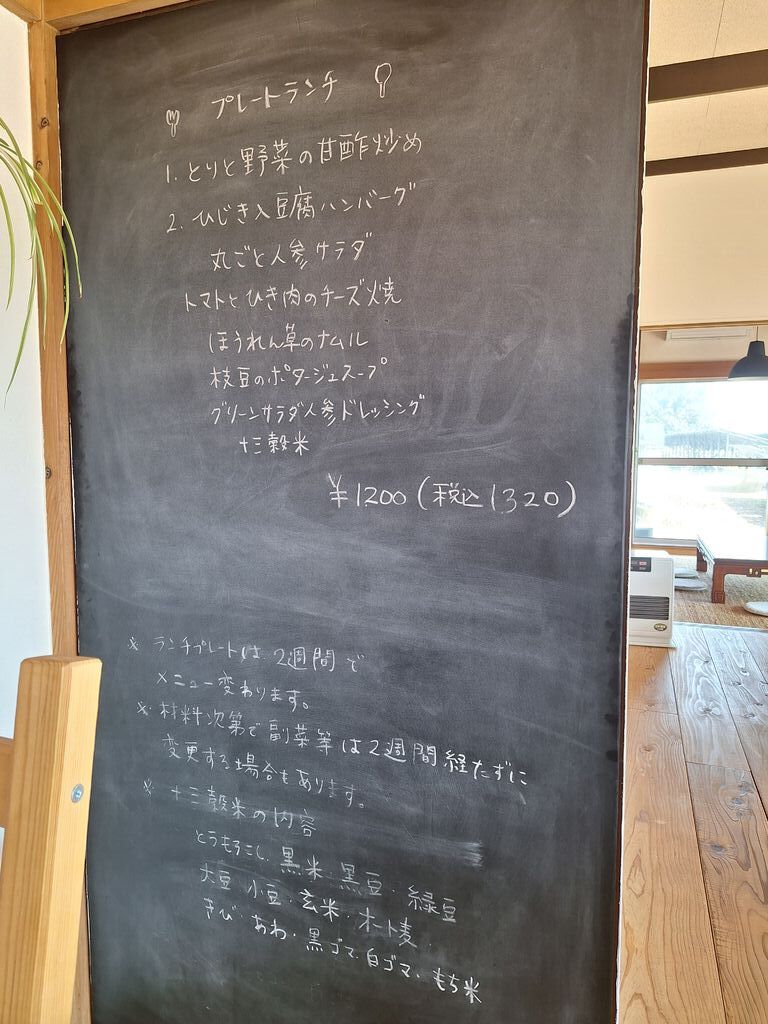 プレートランチ
1. とりと野菜の甘酢炒め
2. ひじき入豆腐ハンバーグ
丸ごと人参サラダ
トマトとひき肉のチーズ焼
ほうれん草のナムル
枝豆のポタージュスープ
グリーンサラダ人参ドレッシング
十三穀米
¥1200(税込1320)
※ ランチプレートは2週間で
メニュー変わります。
※ 材料次第で副菜等は2週間経たずに
変更する場合もあります。
※ 十三穀米の内容
とうもろこし・黒米・黒豆・緑豆
大豆・小豆・玄米・オート麦
きび・あわ・黒ゴマ・白ゴマ・もち米